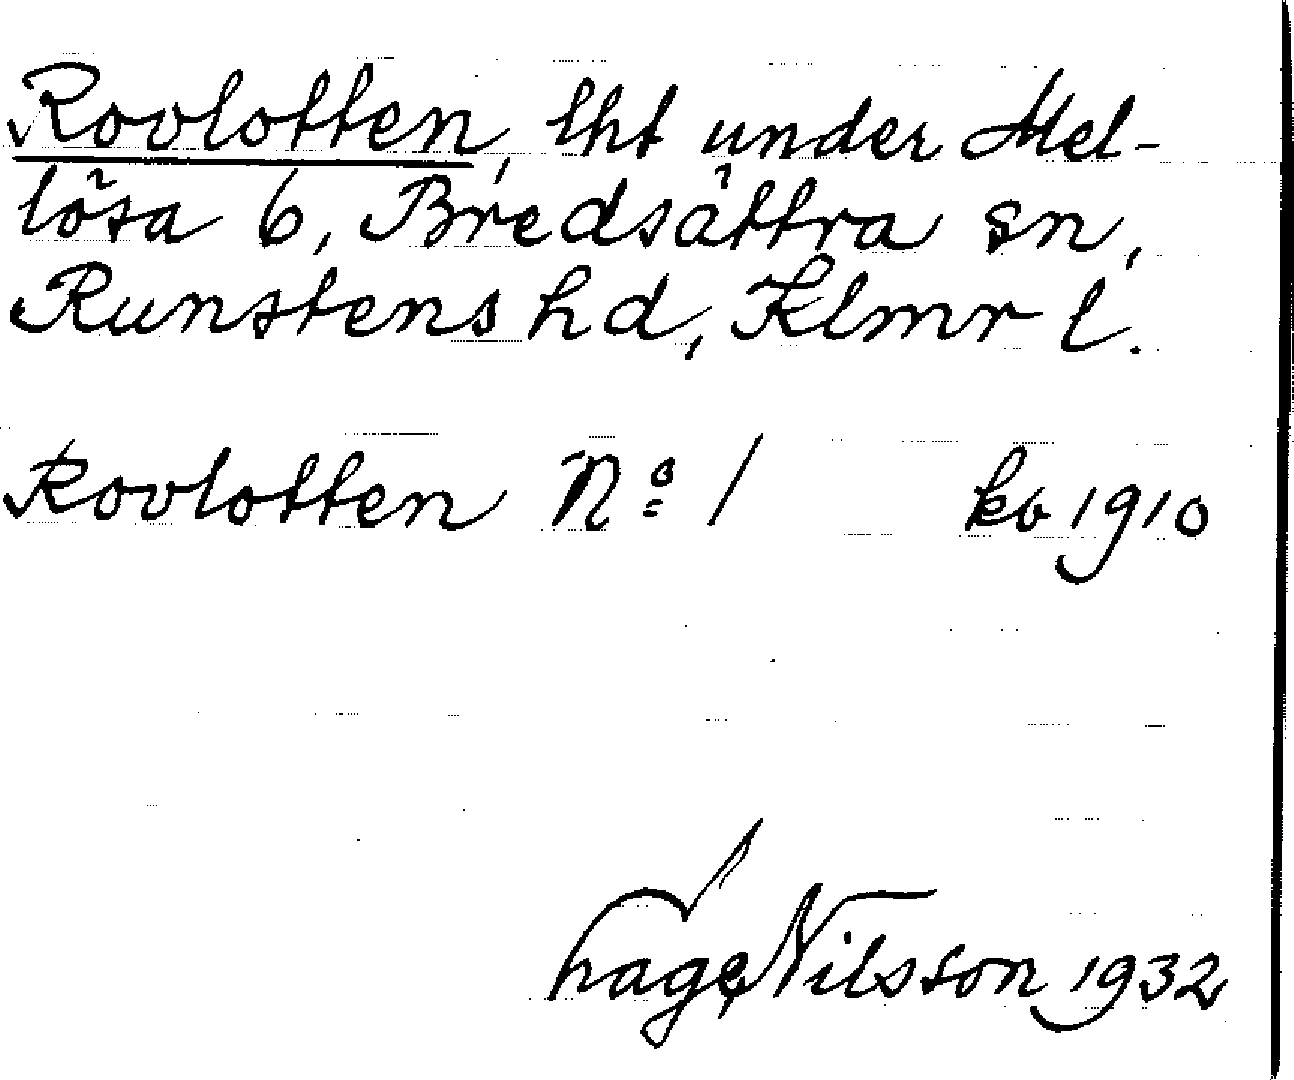 Rovlotten, lht under Mel-
lösa 6, Bredsättra sn,
Runstens hd, Klmr l.
Rovlotten No 1 kb 1910
Hage Nilsson 1932